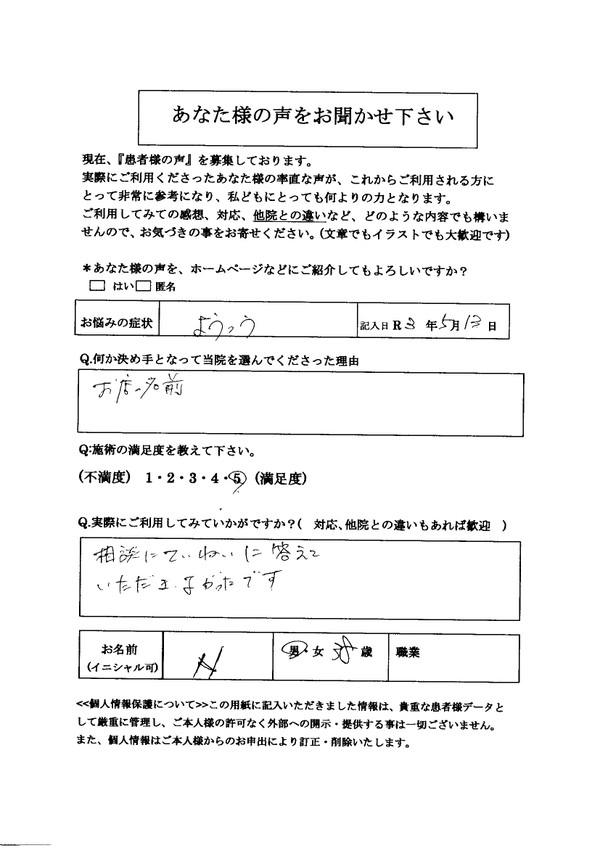 あなた様の声をお聞かせ下さい
現在、『患者様の声』を募集しております。
実際にご利用くださったあなた様の率直な声が、これからご利用される方に
とって非常に参考になり、私どもにとっても何よりの力となります。
ご利用してみての感想、対応、他院との違いなど、どのような内容でも構いま
せんので、お気づきの事をお寄せください。(文章でもイラストでも大歓迎です)
＊あなた様の声を、ホームページなどにご紹介してもよろしいですか？
□ はい □ 匿名
お悩みの症状 ようつう 記入日 R3 年 5月 13 日
Q.何か決め手となって当院を選んでくださった理由
お店の名前
Q:施術の満足度を教えて下さい。
(不満度) 1・2・3・4・5 (満足度)
Q.実際にご利用してみていかがですか？( 対応、他院との違いもあれば歓迎 )
相談にていねいに答えて
いただき、よかったです
お名前 N 男・女 38 歳 職業
(イニシャル可)
<<個人情報保護について>>この用紙に記入いただきました情報は、貴重な患者様データと
して厳重に管理し、ご本人様の許可なく外部への開示・提供する事は一切ございません。
また、個人情報はご本人様からのお申出により訂正・削除いたします。